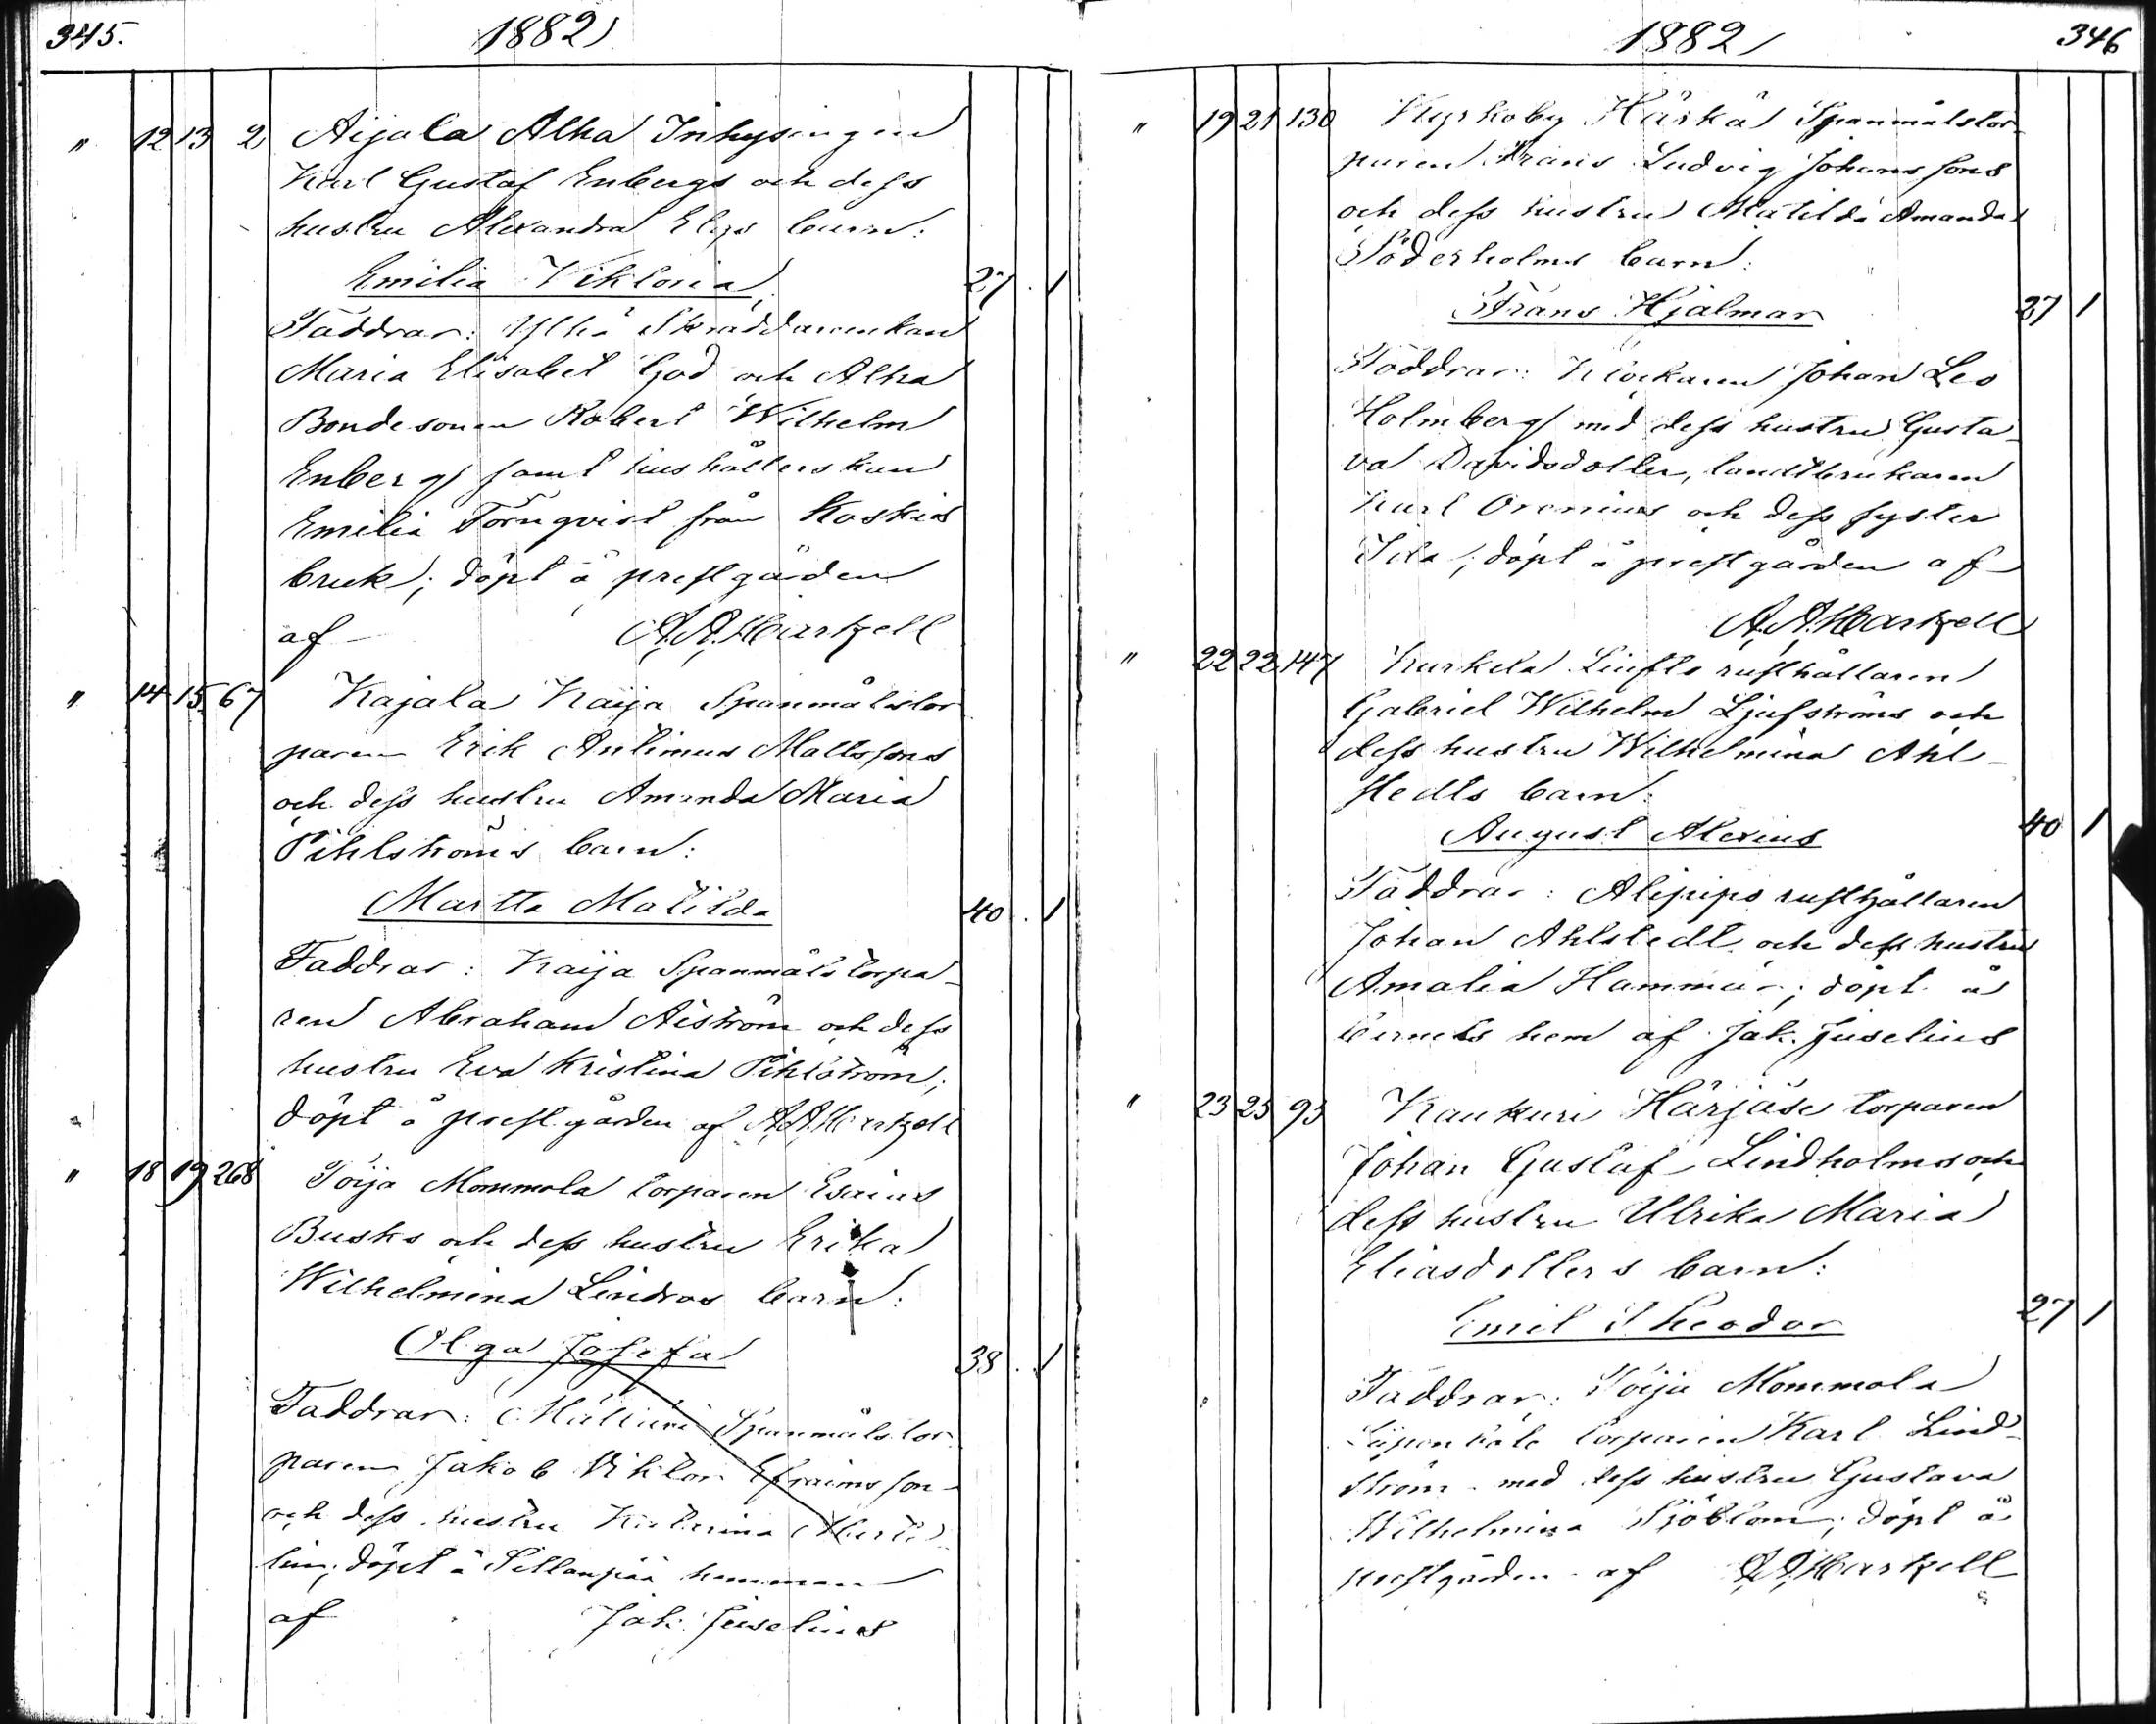 345. 1882
" 12 13 2 Aijala Alha Inhysingen
Karl Gustaf Enbergs och dess
hustru Alexandra Elgs barn:
Emilia Viktoria 27 . 1
Faddrar: Ylhä Skräddarenkan
Maria Elisabet God och Alha
Bondesonen Robert Wilhelm
Enberg samt hushållerskan
Emilia Törnqvist från Koskis
bruk; döpt å prestgården
af A. A. Hartzell
" 14 15 67 Kajala Kaija Spanmålstor
paren Erik Antimus Mattssons
och dess hustru Amanda Maria
Pihlströms barn:
Martta Matilda 40 . 1
Faddrar: Kaija Spanmålstorpa-
ren Abraham Åiström och dess
hustru Eva Kristina Pihlström;
döpt å prestgården af A. A. Hartzell
" 18 19 268 Töija Mommola torparen Esaias
Busks och dess hustru Erika
Wilhelmina Lindros barn:
Olga Josefa 38 . 1
Faddrar: Spanmålstor
paren Jakob Viktor Efraimsson
och dess hustru Katarina
lin; döpt å Sillanpää hemman
af Jak. Juselius
1882 346
" 19 21 130 Kyrkoby Härkä Spanmålstor
paren Frans Ludvig Johanssons
och dess hustru Matilda Amanda
Söderholms barn:
Frans Hjalmar 37 1
Faddrar: Klockaren Johan Leo
Holmberg med dess hustru Gusta-
va Davidsdotter, landtbrukaren
Karl Oronius och dess syster
Ida; döpt å prestgården af
A. A. Hartzell
" 22 22 147 Kurkela rusthållaren
Gabriel Wilhelm Ljufströms och
dess hustru Wilhelmina Ahl-
stedts barn:
August Alexius 40 1
Faddrar: Alipips rusthållaren
Johan Ahlstedt och dess hustru
Amalia Hammar; döpt i
barnets hem af Jak. Juselius
" 23 25 93 Kaukuri Härjäse torparen
Johan Gustaf Lindholms och
dess hustru Ulrika Maria
Eliasdotters barn:
Emil Theodor 27 1
Faddrar: Töija Mommola
torparen Karl Lind-
ström med dess hustru Gustava
Wilhelmina Sjöblom; döpt å
prestgården af A. A. Hartzell